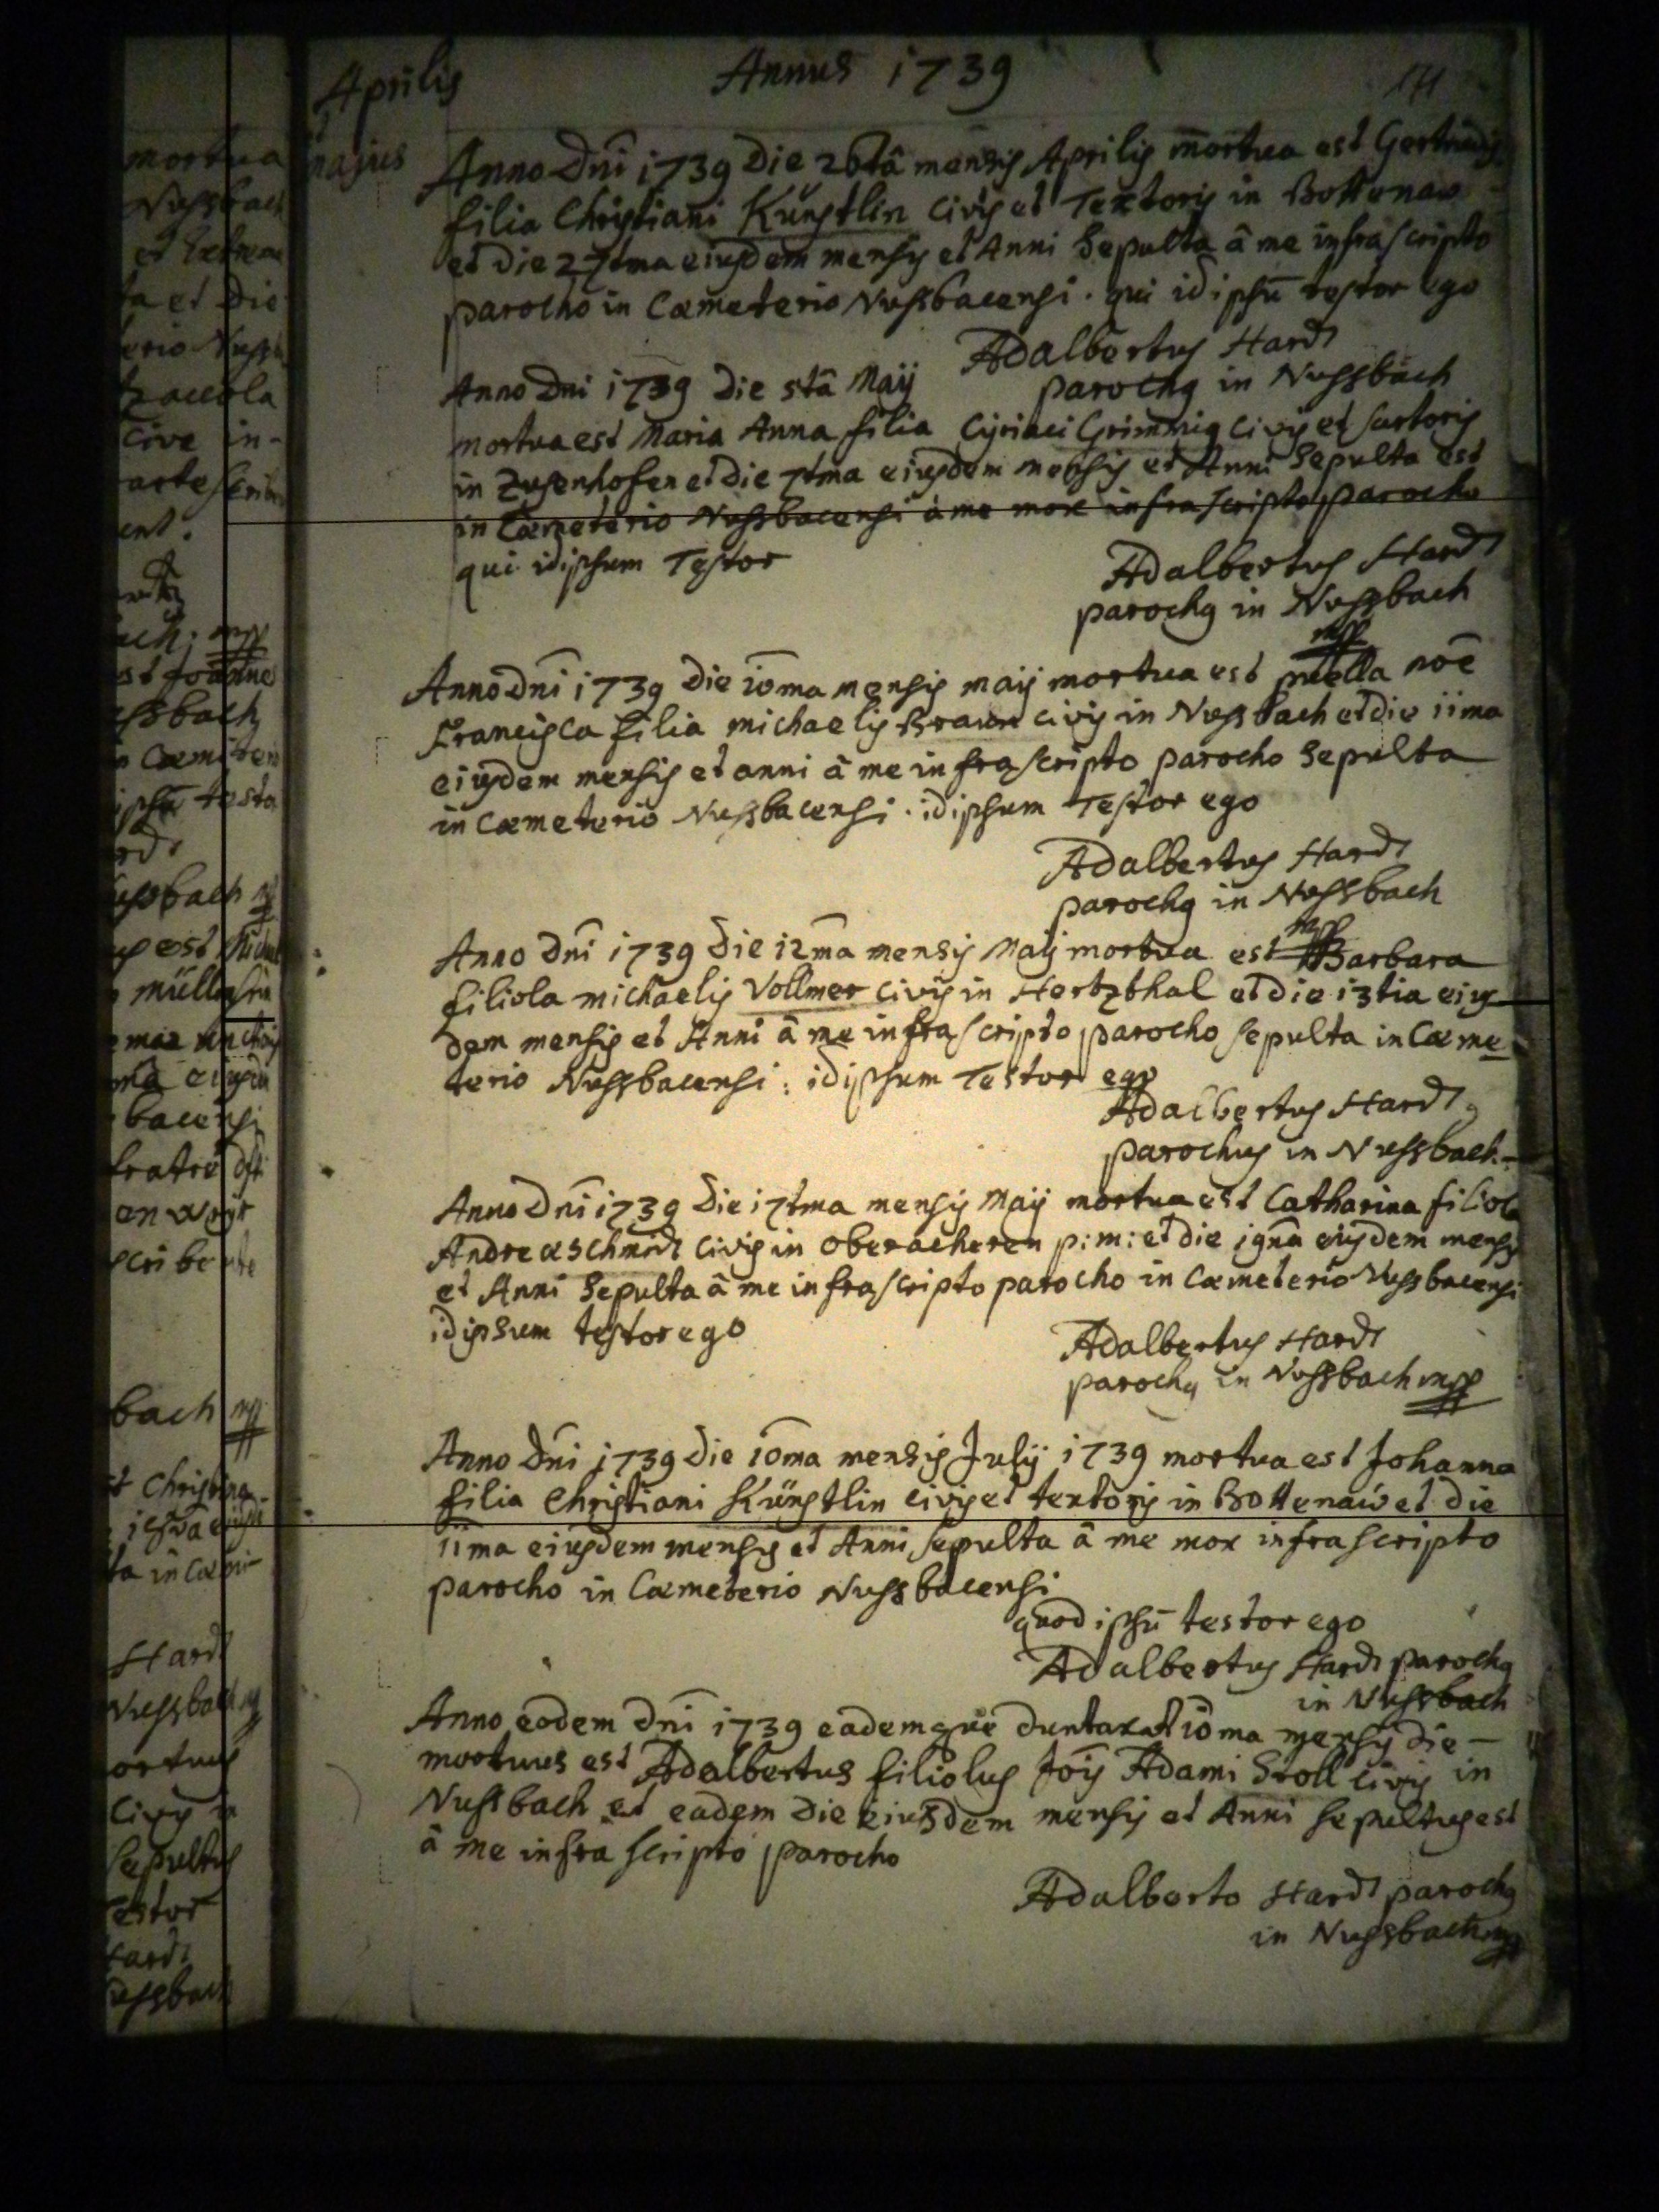 Aprilis Annus 1739 171
majus
Anno Dni 1739 Die 26tâ mensis Aprilis mortua est Gertrudis
filia Christiani Künstlin civis et Textoris in Bottenaw
et die 27tma eiusdem mensis et Anni Sepulta â me infrascripto
parocho in Cœmeterio Nussbacensi. qui idipsū testor ego
Adalbertus Hardt
parochg in Nussbach
Anno Dni 1739 Die 5tâ Maij
mortua est Maria Anna filia Cijriaci Grimmig civis et sartoris
in Zusenhofen et die 7tma eiusdem mensis et Anni Sepulta est
in Cœmeterio Nussbacensi à me mox infrascripto parocho
qui idipsum Testor
Adalbertus Hardt
parochg in Nussbach
mpp
Anno Dni 1739 Die 10ma mensis maij mortua est puella noē
Francisca filia michaelis Braun civis in Nussbach et die 11ma
eiusdem mensis et anni â me infrascripto parocho Sepulta
in Cœmeterio Nussbacensi. idipsum Testor ego
Adalbertus Hardt
parochg in Nussbach
mpp
Anno Dni 1739 Die 12ma mensis Maij mortua est Barbara
filiola michaelis Vollmer civis in Hertzthal et die 13tia eius
dem mensis et Anni â me infrascripto parocho sepulta in Cœme
terio Nussbacensi: idipsum Testor ego
Adalbertus Hardt
parochus in Nussbach.
Anno Dni 1739 Die 17tma mensis Maij mortua est Catharina filiola
Andreæ Schmidt civis in Oberacheren p:m: et die 19na eiusdem mensis
et Anni Sepulta â me infrascripto parocho in Cœmeterio Nussbacensi
idipsum testor ego
Adalbertus Hardt
parochg in Nussbach mpp
Anno Dni 1739 Die 10ma mensis Julij 1739 mortua est Johanna
filia Christiani Künstlin civis et textoris in Bottenaw et die
11ma eiusdem mensis et Anni sepulta â me mox infrascripto
parocho in Cœmeterio Nussbacensi
quod ipsū testor ego
Adalbertus Hardt parochg
in Nussbach
Anno eodem Dni 1739 eademque duntaxat 10ma mensis die
mortuus est Adalbertus filiolus Jōis Adami Stoll civis in
Nussbach et eadem die eiusdem mensis et Anni sepultus est
â me infra scripto parocho
Adalberto Hardt parochg
in Nussbach mpp